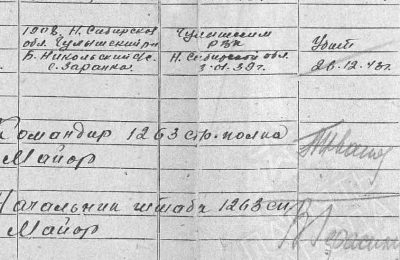 1908. Н. Сибирской
обл. Чулымский р-н
Б. Никольский с/с
с. Заранка.
Чулымским
РВК
Н. Сибирской обл.
Убит
28.12.43г.
Командир 1263 стр. полка
Майор
Начальник штаба 1263 сп
Майор